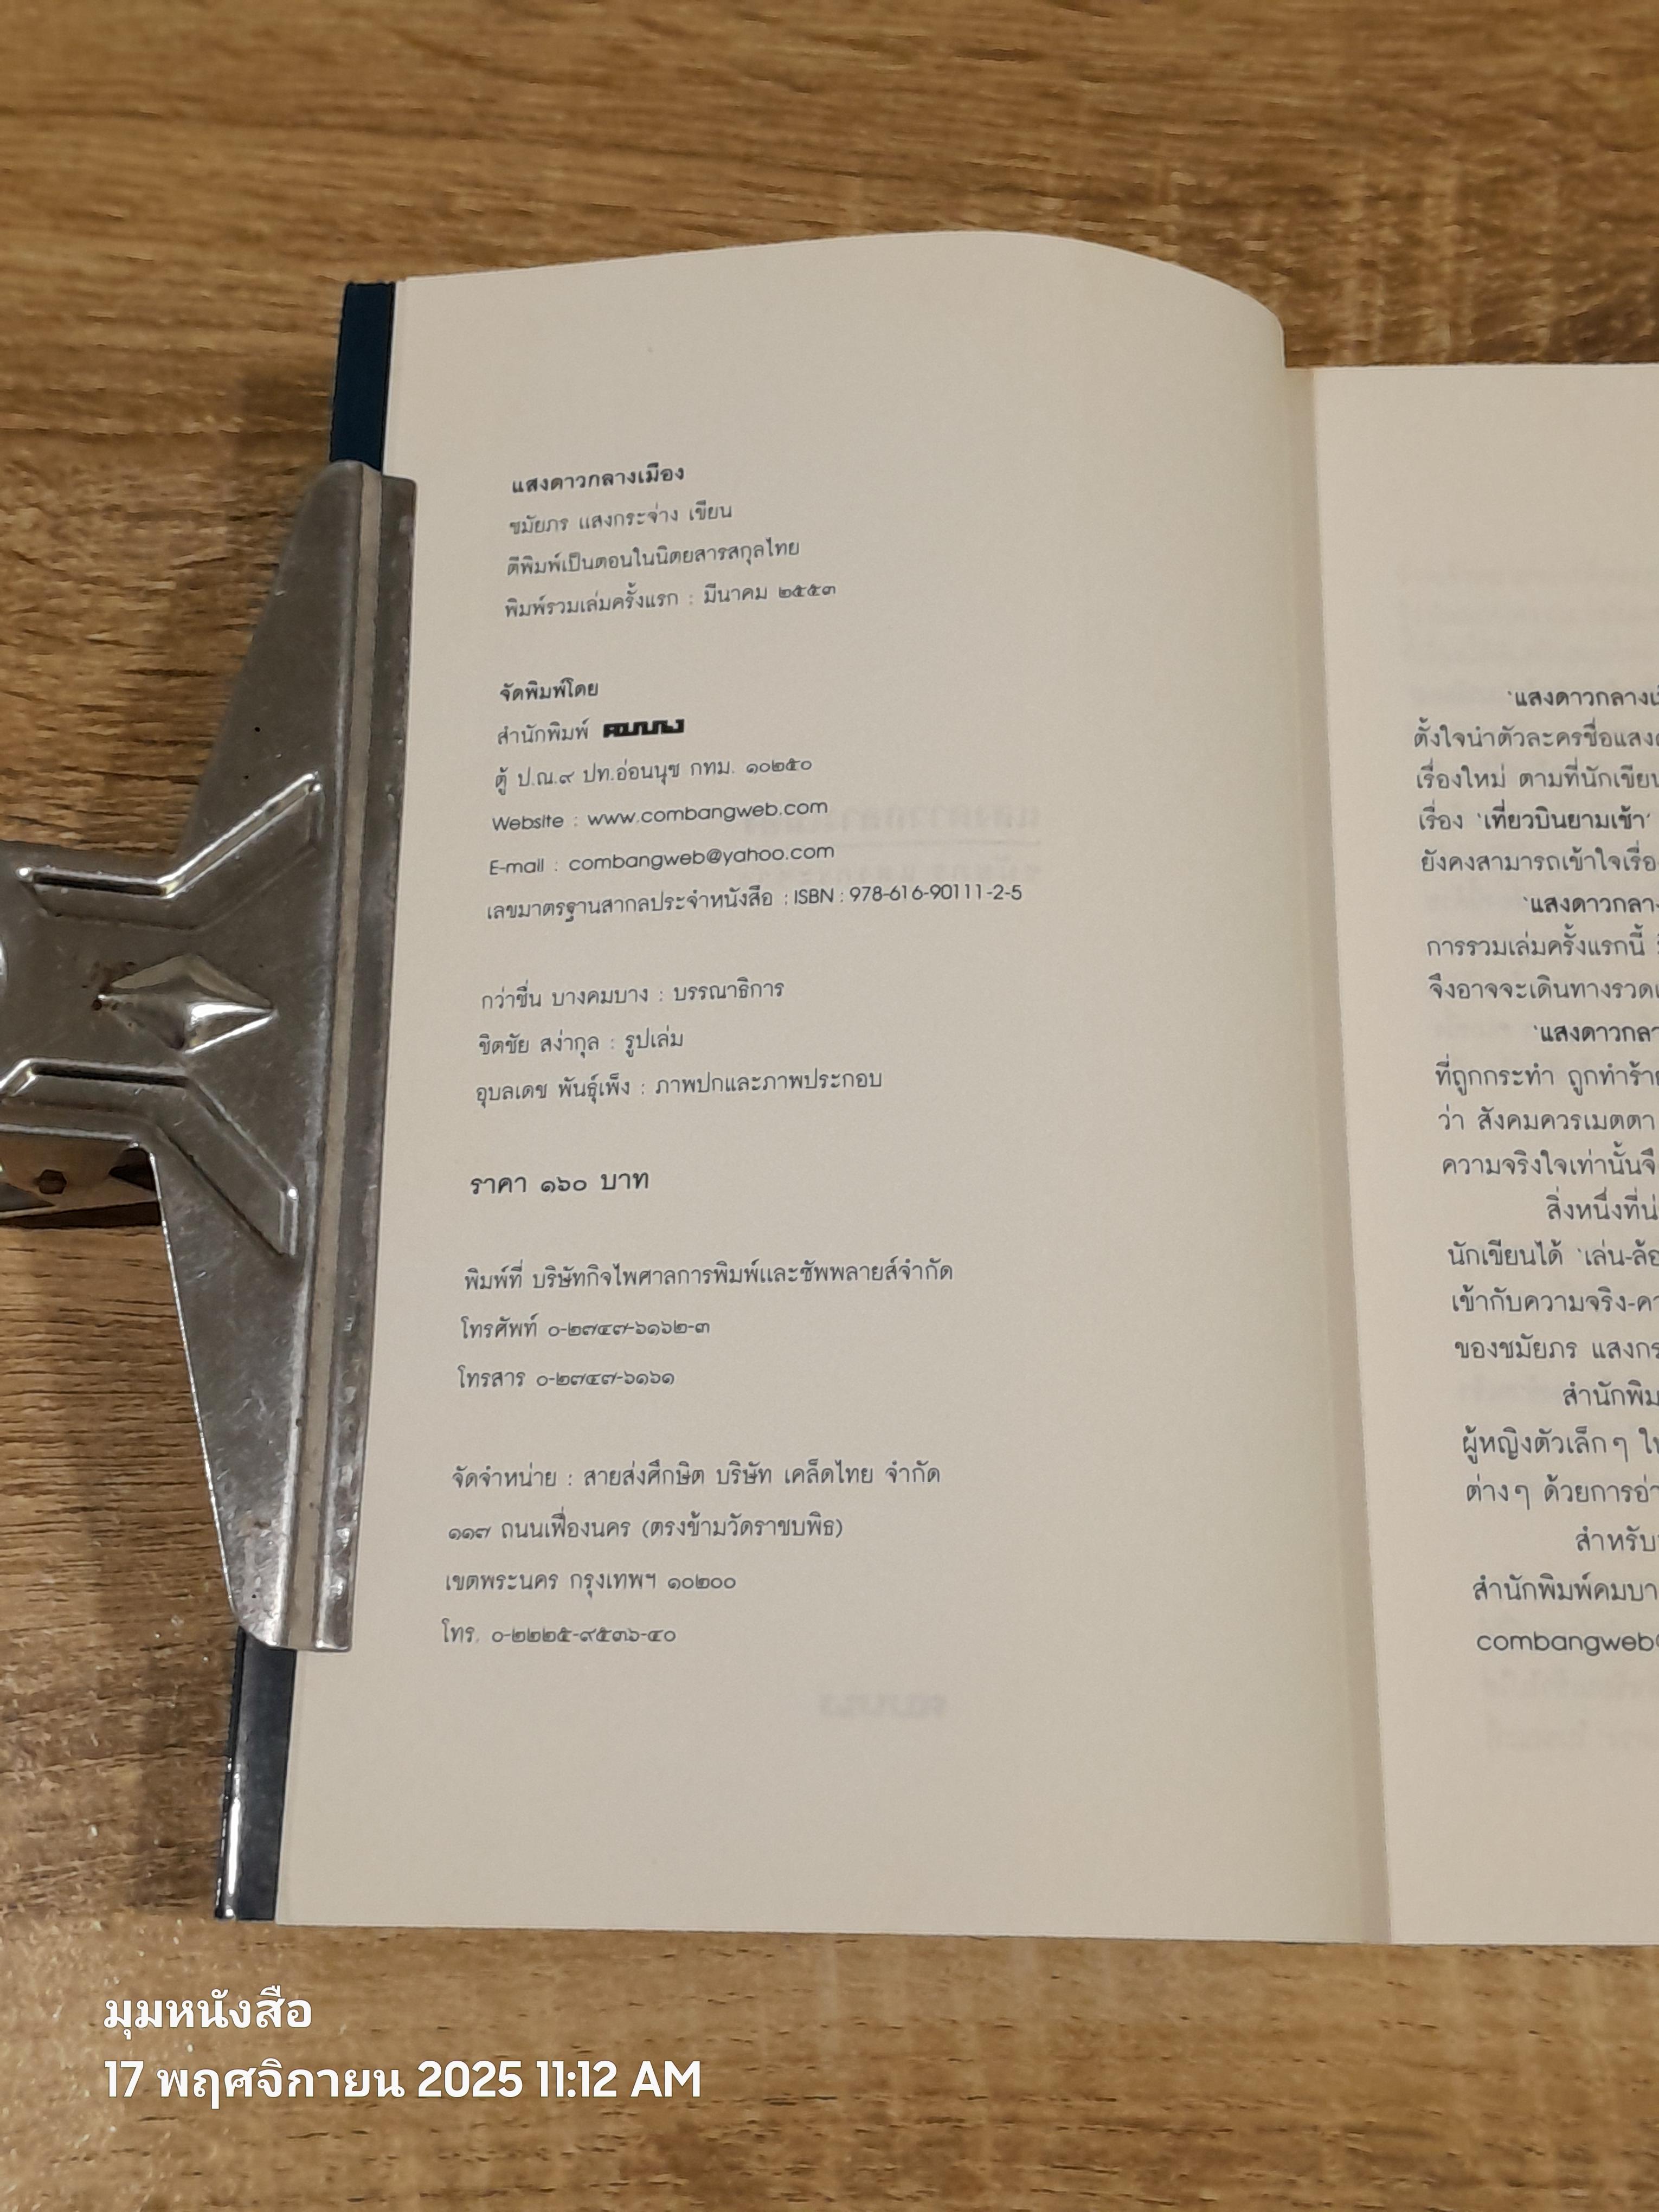 แสงดาวกลางเมือง
ชมัยภร แสงกระจ่าง เขียน
ตีพิมพ์เป็นตอนในนิตยสารสกุลไทย
พิมพ์รวมเล่มครั้งแรก : มีนาคม ๒๕๕๓
จัดพิมพ์โดย
สำนักพิมพ์ คมบาง
ตู้ ป.ณ.๙ ปท.อ่อนนุช กทม. ๑๐๒๕๐
Website : www.combangweb.com
E-mail : combangweb@yahoo.com
เลขมาตรฐานสากลประจำหนังสือ : ISBN : 978-616-90111-2-5
กว่าชื่น บางคมบาง : บรรณาธิการ
ชิตชัย สง่ากุล : รูปเล่ม
อุบลเดช พันธุ์เพ็ง : ภาพปกและภาพประกอบ
ราคา ๑๖๐ บาท
พิมพ์ที่ บริษัทกิจไพศาลการพิมพ์และซัพพลายส์จำกัด
โทรศัพท์ ๐-๒๗๔๗-๖๑๖๒-๓
โทรสาร ๐-๒๗๔๗-๖๑๖๑
จัดจำหน่าย : สายส่งศึกษิต บริษัท เคล็ดไทย จำกัด
๑๑๗ ถนนเฟื่องนคร (ตรงข้ามวัดราชบพิธ)
เขตพระนคร กรุงเทพฯ ๑๐๒๐๐
โทร. ๐-๒๒๒๕-๙๕๓๖-๔๐
'แสงดาวกลางเ
ตั้งใจนำตัวละครชื่อแสง
เรื่องใหม่ ตามที่นักเขียน
เรื่อง 'เที่ยวบินยามเช้า'
ยังคงสามารถเข้าใจเรื่อ
'แสงดาวกลาง
การรวมเล่มครั้งแรกนี้
จึงอาจจะเดินทางรวด
'แสงดาวกลา
ที่ถูกกระทำ ถูกทำร้า
ว่า สังคมควรเมตตา
ความจริงใจเท่านั้นจึ
สิ่งหนึ่งที่น่
นักเขียนได้ 'เล่น-ล้อ
เข้ากับความจริง-ค
ของชมัยภร แสงกร
สำนักพิม
ผู้หญิงตัวเล็กๆ ใ
ต่างๆ ด้วยการอ่า
สำหรับ
สำนักพิมพ์คมบา
combangweb@
มุมหนังสือ
17 พฤศจิกายน 2025 11:12 AM